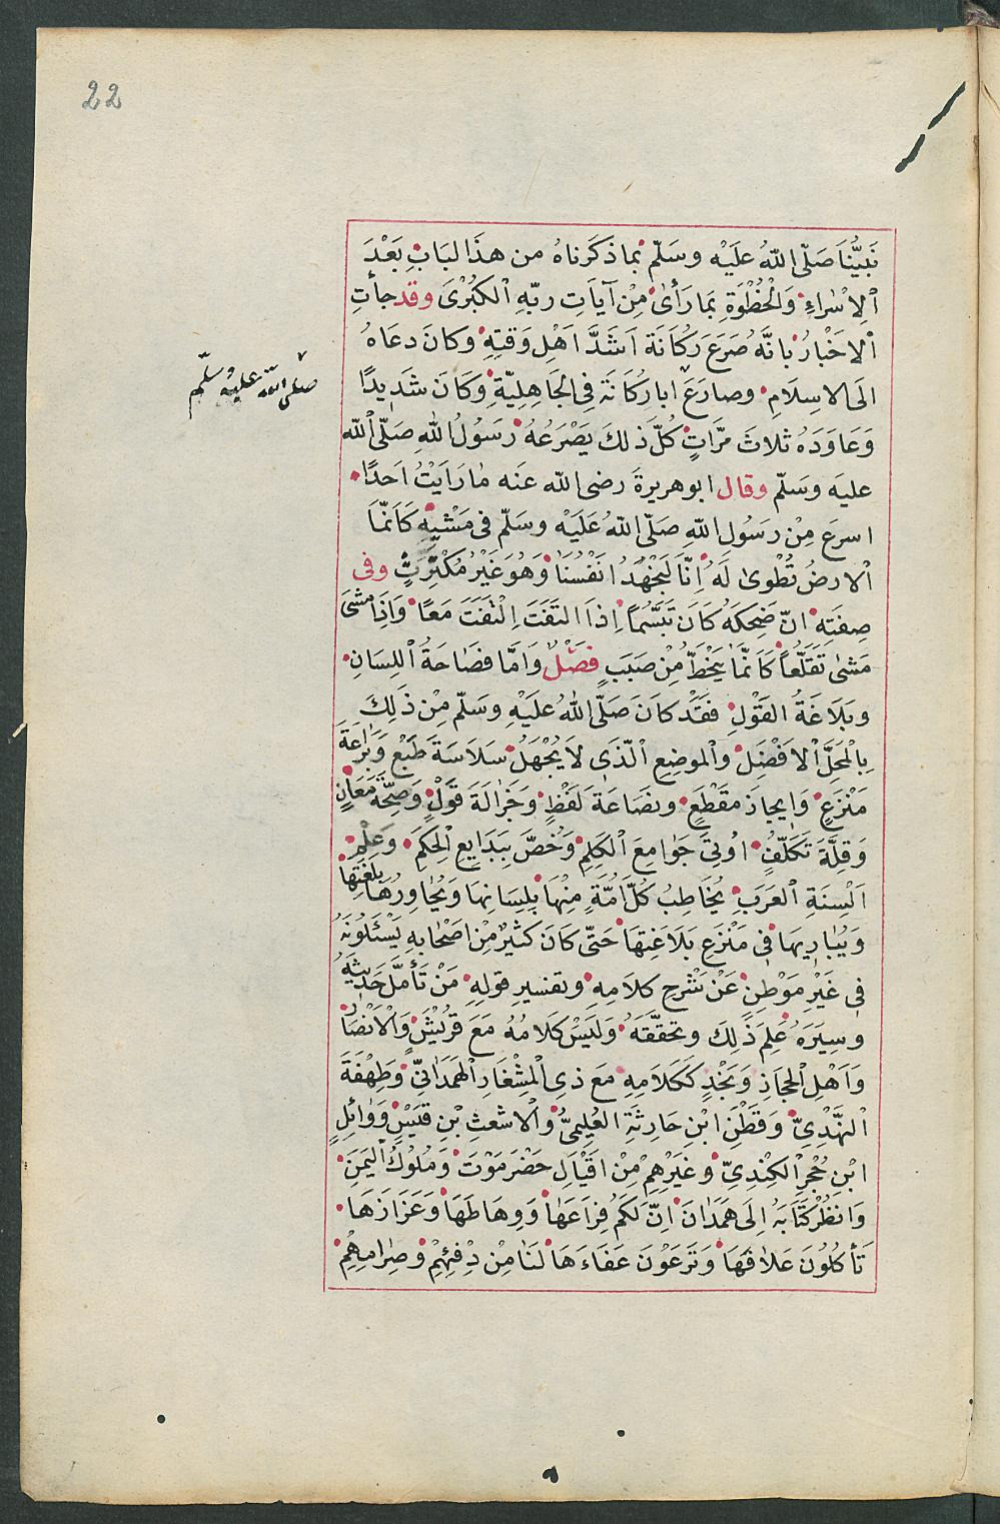 22
نَبِيُّنَا صَلّى اللّٰهُ علَيْه وسَلّم بما ذكَرناهُ من هذَا لبَابِ بَعْدَ
اْلاِسْرَاءِ وَالْحُظْوَةِ بمَا رَأىٰ مِنْ آيَاتِ ربّهِ اْلكُبْرىَ وقد جأتِ
اْلاخْبارُ بانَّهُ صَرَعَ رُكَانَةَ اَشَدَّ اَهْلِ وَقتِهِ وكانَ دعَاهُ
الَى الاسِلَامِ وصارَعَ ابارُكَانَة فِى الجَاهِلِيّةِ وَكَانَ شَدَيدًا
صلّى اللّه عليْه سلّم
وَعَاوَدَهُ ثلاثَ مرَّاتٍ كُلَّ ذلكَ يَصْرَعُهُ رسَوُلُ اللّٰهِ صَلّى اللّٰه
عليَه وَسَلّم وقال ابوهريرةَ رضى اللّٰه عَنه مٰا رَايَتُ اَحدًا
اسرعَ مِنْ رسَوُلِ اللّهِ صَلّى اللّهُ عَلَيْه وسَلّم فى مَشْيِهِ كَاَنّمَا
اْلارضُ تُطْوىٰ لَهُ اِنّا لَنَجْهَدُ انَفْسُنَا وَهُوَ غَيْرُ مُكْتَرِثٍ وفى
صِفَتِه انّ ضَحِكَهُ كَانَ تَبَسُّماً اِذا التَفَتَ اِلْتَفَتَ مَعًا وَاِذَا مَشىٰ
مَشىٰ تقَلّعاً كَاَنّمَا يَنْحَطّ مِنْ صَبَبٍ فصَلٌ وَامّا فصَاحَةُ اْللِسَانِ
وبلَاغَةُ القَوْلِ فقَدْ كانَ صَلّى اللّٰهُ عليَْهِ وسَلّم مِنْ ذلِكَ
بِالْمحَلّ اْلافَضْلِ وْالموضِعِ اْلّذَى لاَ يُجْهَلُ سَلاَسَةَ طَبْعٍ وَبَرَاعَةَ
مَنْزَعٍ وَايجازَ مقَطْعٍ ونصَاعَةَ لَفْظٍ وجَزَالَةَ قوَلٍْ وَصِحّةَ مَعَانٍ
وَقِلَّةَ تكَلّفٍ اوُتِىَ جَوامِعَ الْكَلِمِ وَخُصَّ ببَدَايِعِ الْحِكَمِ وَعِلْمِ
اَلْسِنَةِ اْلعَرَبِ يُخَاطِبُ كُلّ اُمّةٍ مِنْهَا بِلِسَانِهَا وَيُحَاوِرُهَا بِلُغَتِهَا
وَيُبَارِيهَا فى مَنْزَعِ بَلاَغَتِهَا حَتّى كَانَ كَثيرٌ مِنْ اصْحَابهِ يَسْئَلُونَهُ
فى غَيْرِ مَوْطِنٍ عَنْ شَرْحِ كلاَمِهِ وتفسيرِ قولِهِ مَنْ تَأمّلَ حَديثَهُ
وسِيَرَهُ عَلِمَ ذَلِكَ وتحقّقَهُ وَليَسَْ كَلامُهُ مَعَ قريْشٍَ وَاْلاَنْصَارِ
وَاَهْلِ الْحِجَازِ وَنَجْدٍ كَكَلاَمِهِ مَعَ ذِى الْمِشْعَارِ الْهَمَدَانِىّ وَطِهْفَةَ
اْلنّهْدِىّ وَقَطَنِ ابْنِ حَارِثَةِ الْعُلِيمىّ وْالاشعَثِ بْنِ قيَسٍْ وَوَائِلِ
ابْنِ حُجْرِ اْلكِنْدِىّ وغَيَرِْهِمْ مِنْ اقَيْاَلِ حَضْرَمَوْتَ وَمُلوُكِ اْليَمَنِ
وَانظُرْ كَتَابَهُ اِلَى هَمَدْانَ اِنّ لَكُمْ فِرَاعَهَا وَوِهَاطَهَا وَعَزَازَهَا
تَأكُلُونَ عَلاَفَهَا وَتَرعَوْنَ عَفَاءَهَا لنَا مِنْ دِفْئِهِمْ وَصِرَامِهِمْ